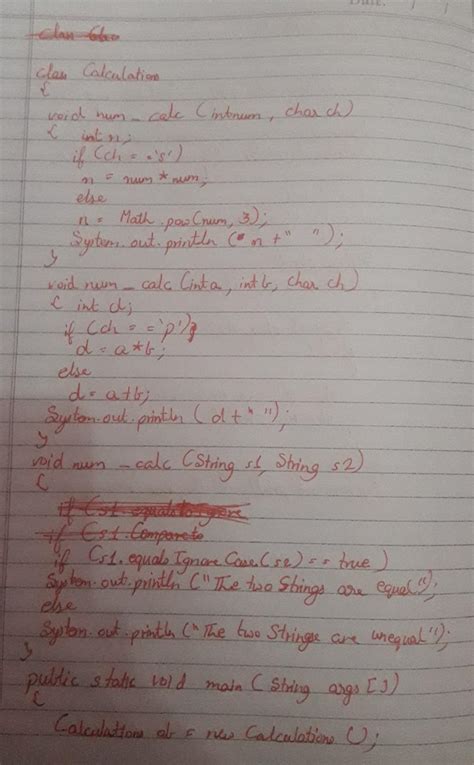 Date. / /
class Calculations
{
void num_calc (int num, char ch)
{ int n;
if (ch = = 's')
n = num * num;
else
n = Math.pow(num, 3);
System.out.println ( n + " ");
}
void num_calc (int a, int b, char ch)
{ int d;
if (ch = = 'p')
d = a*b;
else
d = a+b;
System.out.println (d + " ");
}
void num_calc (String s1, String s2)
{
if (s1.equalsIgnore
if (s1.Compareto
if (s1.equalsIgnoreCase(s2) = = true)
System.out.println ("The two Strings are equal");
else
System.out.println ("The two Strings are unequal");
}
public static void main ( String args [ ])
{
Calculations ob = new Calculations ();